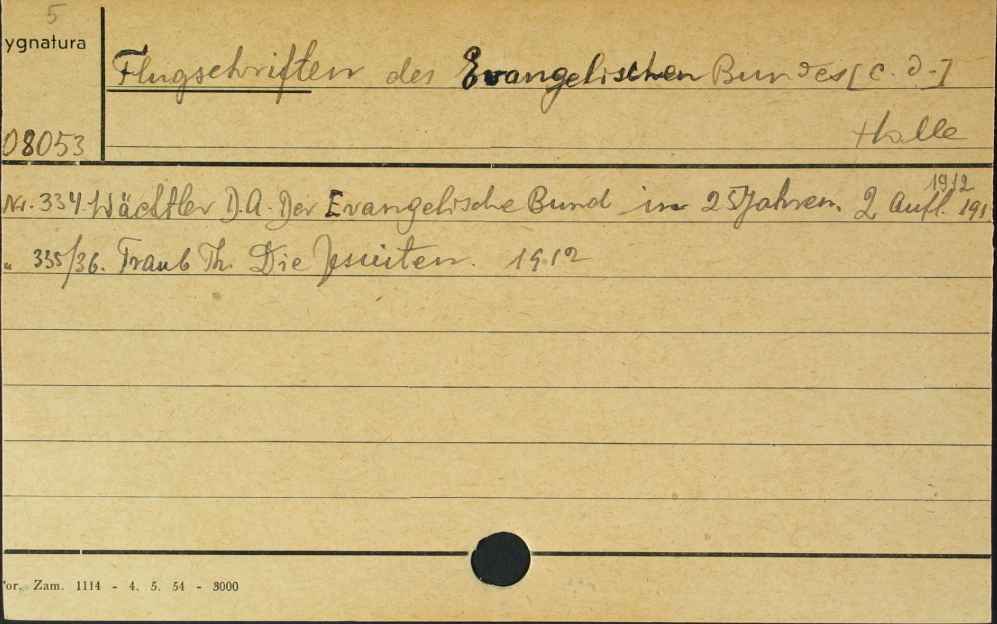 5
ygnatura
Flugschriften des Evangelischen Bundes [c. d.]
08053
Halle
Nr. 334 Wächtler D. A. Der Evangelische Bund in 25 Jahren. 2 Aufl. 191
1912
" 335/36. Traub Th. Die Jesuiten. 1912
or. Zam. 1114 - 4. 5. 54 - 3000